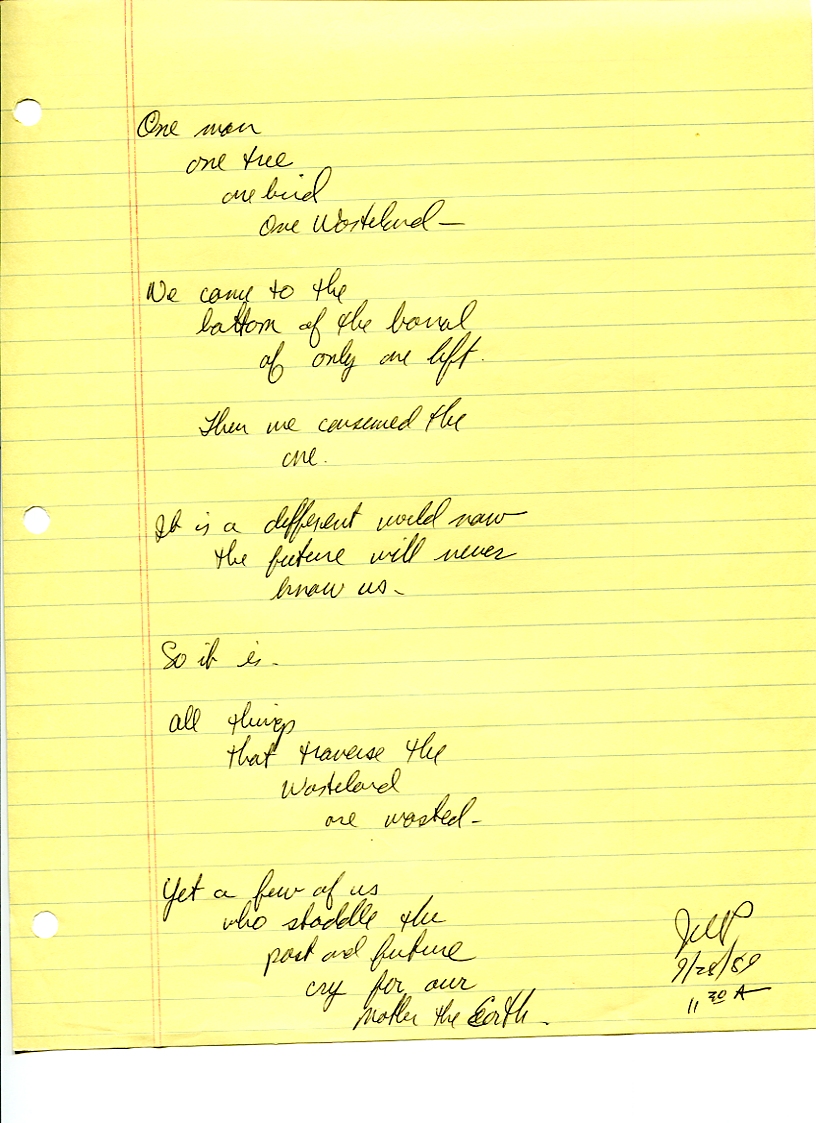 One man
one tree
one bird
One Wasteland—
We came to the
bottom of the barrel
of only one left.
Then we consumed the
one.
It is a different world now
the future will never
know us-
So it is-
all things
that traverse the
Wasteland
are wasted-
Yet a few of us
who staddle the
past and future
cry for our
Mother the Earth-
11 30 A